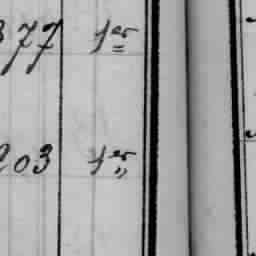 377 1er
203 1er